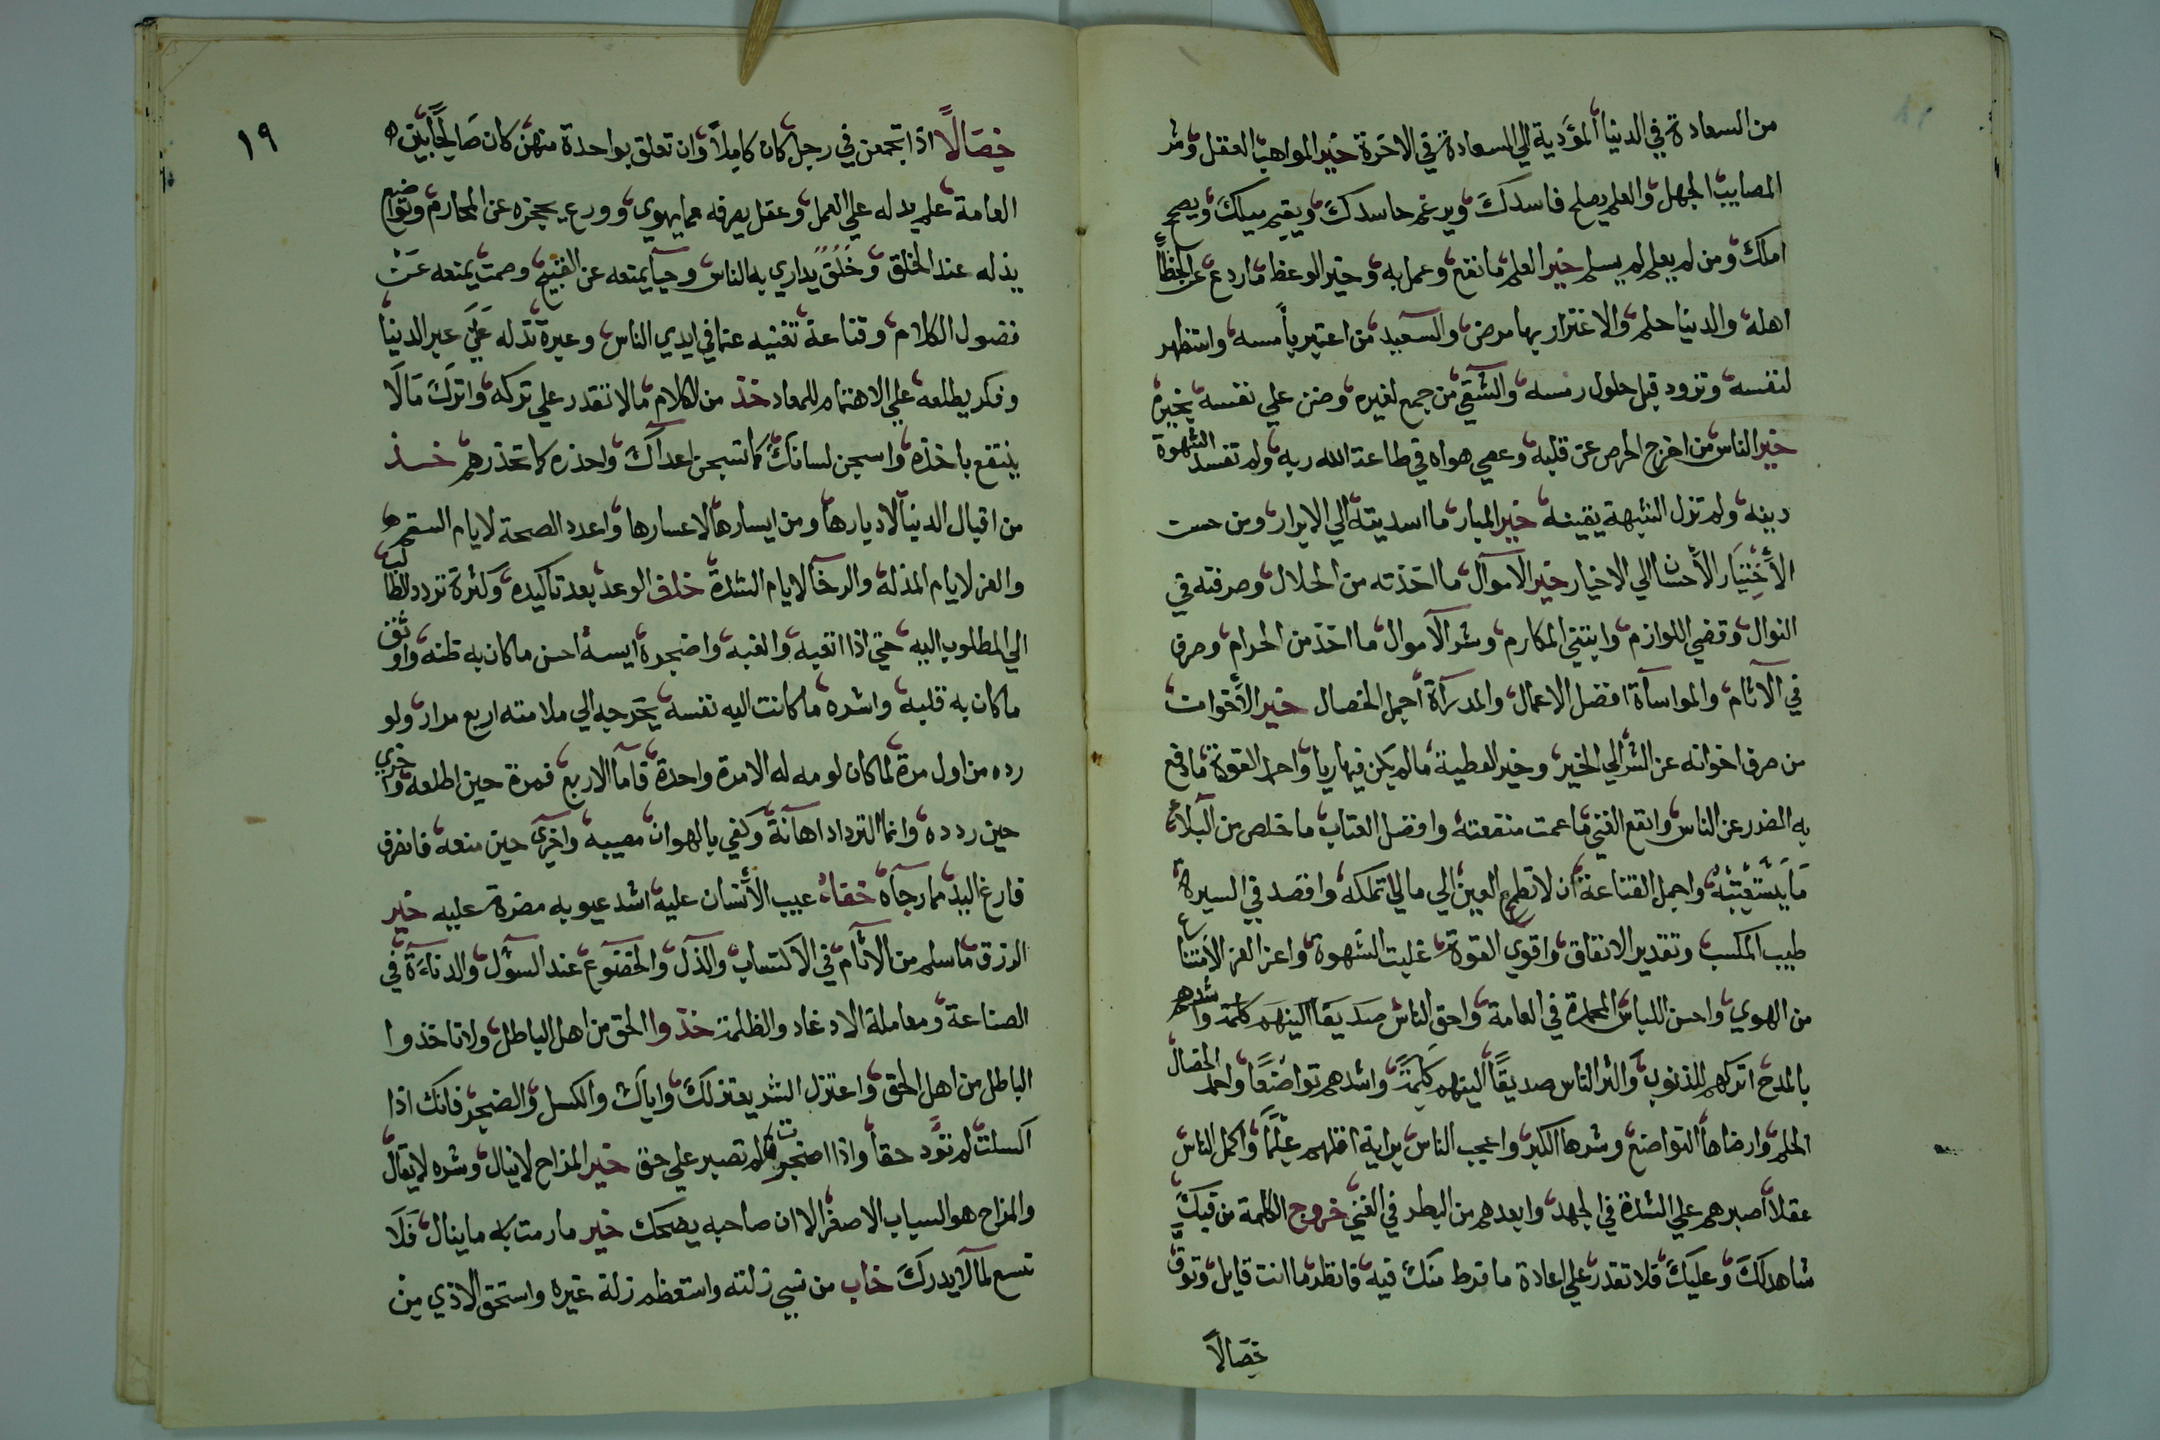 من السعادة في الدنيا المؤدية الي السعادة في الاخرة خير المواهب العقل وشر
المصايب الجهل والعلم يصلح فاسدك ويرغم حاسدك ويقيم ميلك ويصحح
املك ومن لم يعلم لم يسلم خير العلم ما نفع وعمل به وخير الوعظ ما ردع عن الخطأ
اهله والدنيا حلم والاغترار بها مرض والسعيد من اعتبر بأمسه واستظهر
لنفسه وتزود قبل حلول رمسه والشقي من جمع لغيره وضن علي نفسه بخيره
خير الناس من اخرج الحرص عن قلبه وعصي هواه في طاعة الله ربه ولم تفسد الشهوة
دينه ولم تزل الشبهة يقينه خير المبار ما اسديته الي الابرار ومن حسن
الأختيار الأحسان الي الاخيار خير الاموال ما اخذته من الحلال وصرفته في
النوال وقضي اللوازم وابتني المكارم وشر الاموال ما اخذ من الحرام وصرف
في الآثام والمواساة افضل الاعمال والمدرآة اجمل الخصال خير الأخوان
من صرف اخوانه عن الشر الي الخير وخير العطية ما لم يكن فيها ريا واحد القوة ما دفع
به الضرر عن الناس وانفع الغني ما عمت منفعته وافضل العتاب ما خلص من البلاء
ما يستعتبه واجمل القناعة أن لا تطمح العين الي ما لا تملكه واقصد في السيرة
طيب المكسب وتقدير الانفاق واقوي القوة غلبت الشهوة واعز العز الامتناع
من الهوي واحسن اللباس المحمدة في العامة واحق الناس صديقا الينهم كلمة واشدهم
بالمدح اتركهم للذنوب واكثر الناس صديقاً الينهم كلمةً واشدهم تواضعًا واحمد الخصال
الحلم وارضاها التواضع وشرها الكبر واعجب الناس براية اقلهم علماً واكمل الناس
عقلاً اصبرهم علي الشدة في الجهد وابعدهم من البطر في الغني خروج الكلمة من فيك
شاهد لك وعليك فلا تقدر علي اعادة ما فرط منك فيه فانظر ما انت قايل وتوق
خصالاً
١٩
خصالاً اذا اجتمعن في رجل كان كاملاً وان تعلق بواحدة منهن كان صالحا بين
العامة علم يدله علي العمل وعقل يصرفه عما يهوي وورع يحجزه عن المحارم وتواضع
يذله عند الخلق وخلق يداري به الناس وحيآ يمنعه عن القبيح وصمت يمنعه عن
فضول الكلام وقناعة تغنيه عما في ايدي الناس وعبرة تدله علي عبر الدنيا
وفكر يطلعه علي الاهتمام للمعاد خذ من الكلام ما لا تقدر علي تركه واترك ما لا
ينتفع باخذه واسجن لسانك كما تسجن اعداك واحذره كما تحذرهم خذ
من اقبال الدنيا لادبارها ومن ايسارها لاعسارها واعدد الصحة لايام السقم
والعز لايام المذلة والرخآ لايام الشدة خلف الوعد بعد تاكيده وكثرة تردد الطالب
الي المطلوب اليه حتي اذا اتعبه والغبه واضجره أيسه احسن ما كان به ظنه واوثق
ما كان به قلبه واشره ما كانت اليه نفسه يحرجه الي ملامته اربع مرار ولو
رده من اول مرة لما كان لومه له الا مرة واحدة فاما الاربع فمرة حين اطلعه واخري
حين ردده وانما الترداد اهانة وكفي بالهوان مصيبه واخري حين منعه فانصرف
فارغ اليد مما رجاه خفاء عيب الأنسان عليه اشد عيوبه مضرة عليه خير
الرزق ما سلم من الاثام في الاكتساب والذل والخضوع عند السؤل والدناءة في
الصناعة ومعاملة الاوغاد والظلمة خذوا الحق من اهل الباطل ولا تاخذوا
الباطل من اهل الحق واعتزل الشر يعتزلك واياك والكسل والضجر فانك اذا
اكسلت لم تؤد حقا واذا اضجرت لم تصبر علي حق خير المزاح لا ينال وشره لا يقال
والمزاح هو السباب الاصغر الا ان صاحبه يضحك خير ما رمت به ما ينال فلا
تسع لما لا يدرك خاب من نسي زلته واستعظم زلة غيره واستحق الاذي من